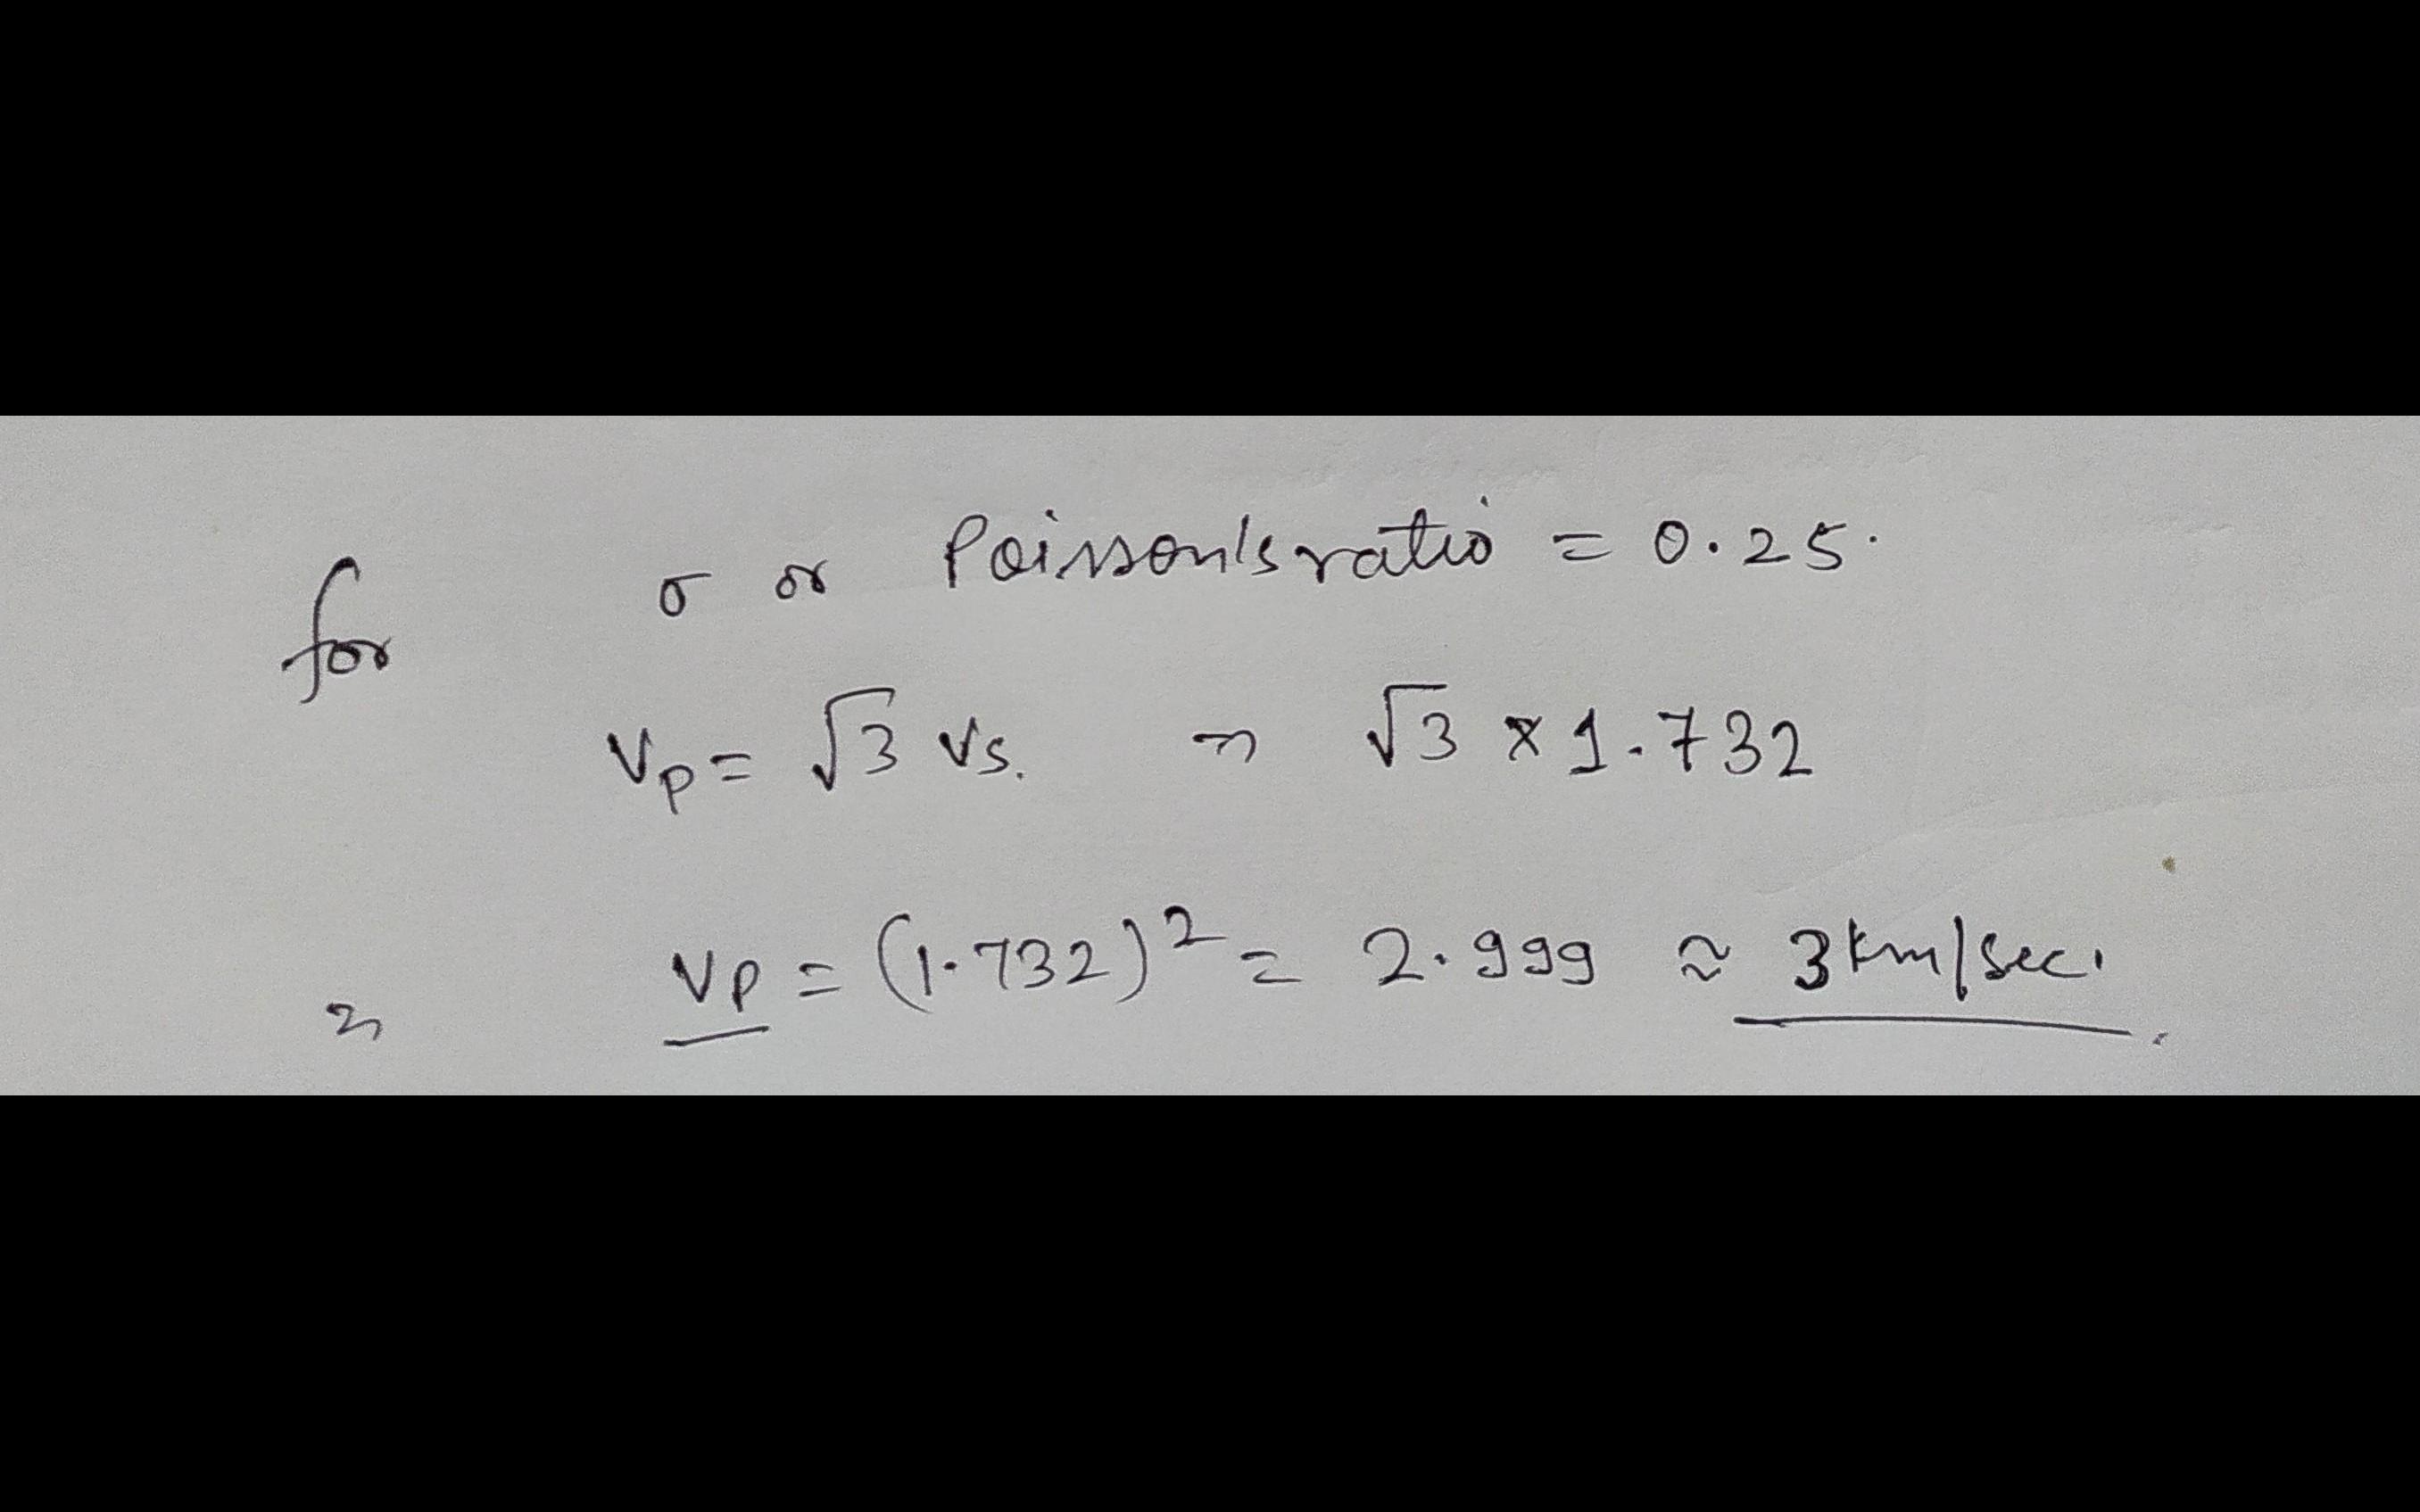 for σ or Poisson's ratio = 0.25.
Vp = √3 Vs. ⇒ √3 × 1.732
⇒ Vp = (1.732)² = 2.999 ≈ 3 km/sec.